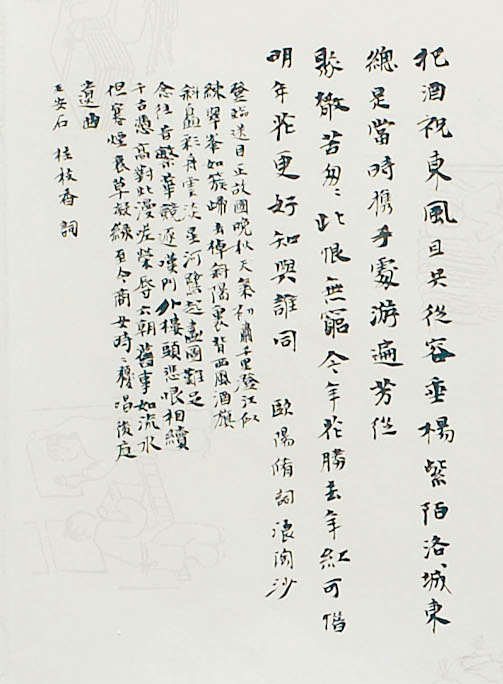 把酒祝東風且共從容垂楊紫陌洛城東
總是當時携手處游遍芳从
聚散苦匆〻此恨無窮今年花勝去年紅可惜
明年花更好知與誰同 歐陽脩詞浪淘沙
登臨送目正故國晚秋天氣初肅千里澄江似
練翠峯如簇歸去棹斜陽裏背西風酒旗
斜矗彩舟雲淡星河鷺起畫圖難足
念往昔繁華競逐嘆門外樓頭悲恨相續
千古憑高對此漫嗟榮辱六朝舊事如流水
但寒煙衰草凝綠至今商女時〻猶唱後庭
遺曲
王安石 桂枝香 詞